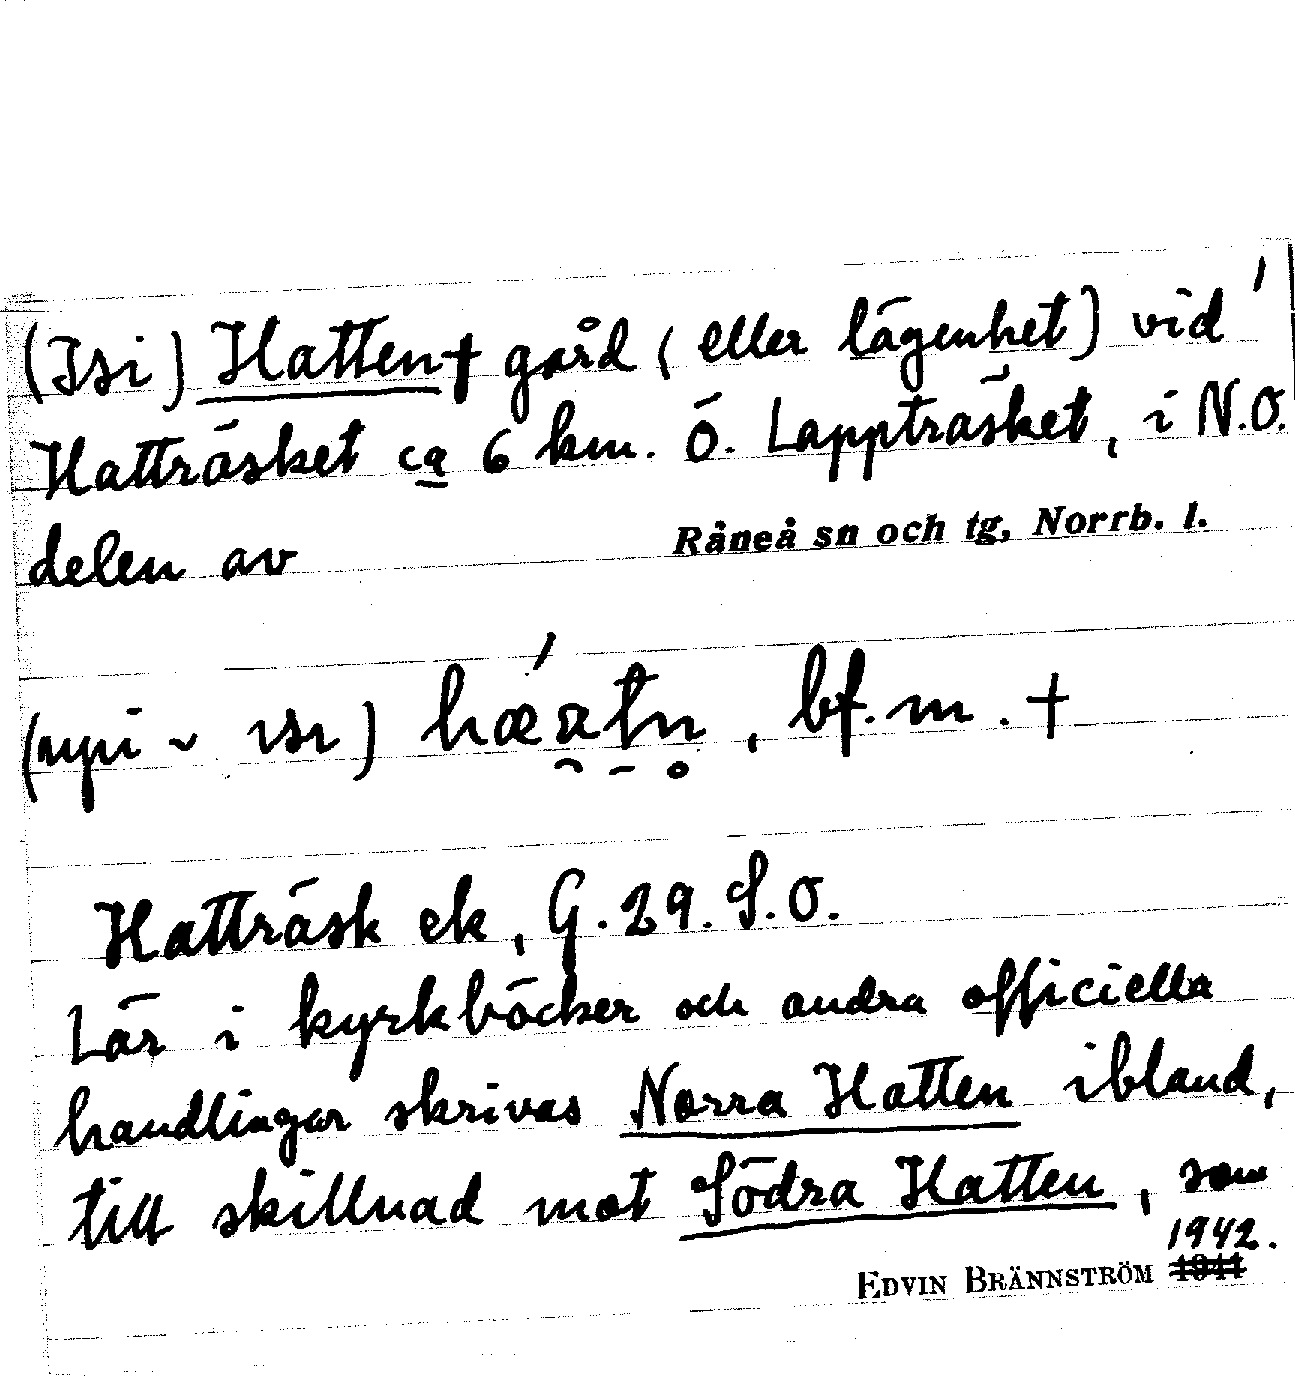 (Isi) Hatten† gård (eller lägenhet) vid
Hatträsket ca 6 km. Ö. Lappträsket, i N.O.
delen av Råneå sn och tg, Norrb. l.
bf. m. †
Hatträsk ek, G. 29. S.O.
Lär i kyrkböcker och andra officiella
handlingar skrivas Norra Hatten ibland,
till skillnad mot Södra Hatten, som
1942.
EDVIN BRÄNNSTRÖM 1941